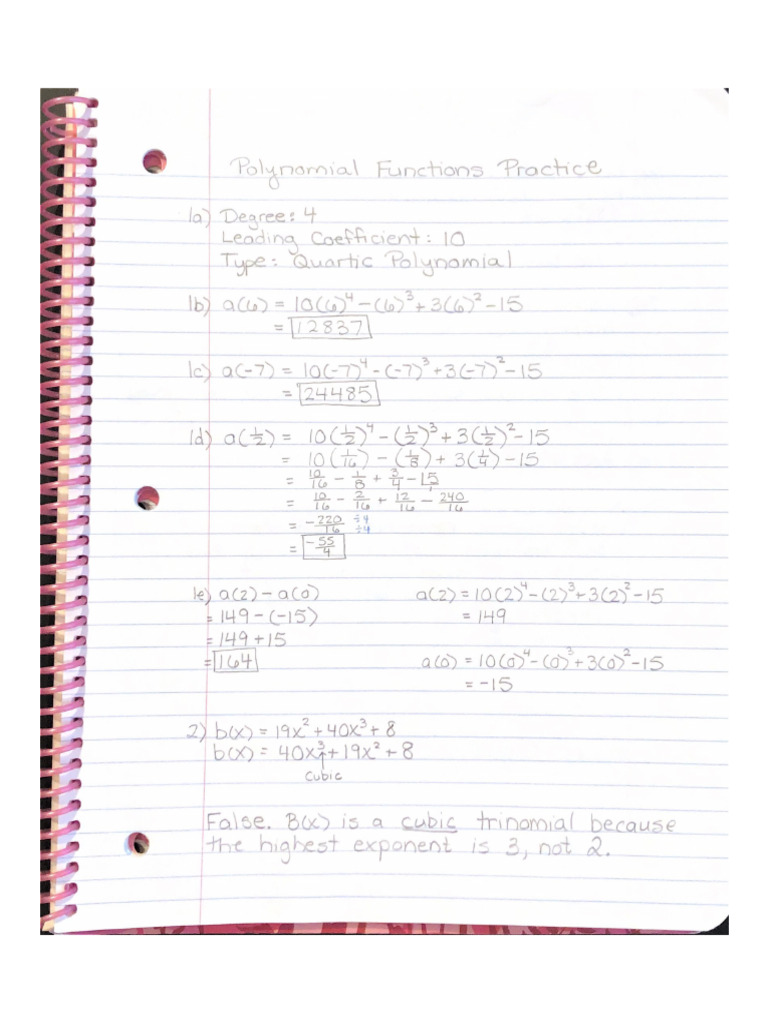 Polynomial Functions Practice
1a) Degree: 4
Leading Coefficient: 10
Type: Quartic Polynomial
1b) a(6) = 10(6)⁴-(6)³+3(6)²-15
= 12837
1c) a(-7) = 10(-7)⁴-(-7)³+3(-7)²-15
= 24485
1d) a(1/2) = 10(1/2)⁴-(1/2)³+3(1/2)²-15
= 10(1/16) - (1/8) + 3(1/4) - 15
= 10/16 - 1/8 + 3/4 - 15/1
= 10/16 - 2/16 + 12/16 - 240/16
= -220/16 ÷4/÷4
= -55/4
1e) a(2) - a(0)
= 149 - (-15)
= 149 + 15
= 164
a(2) = 10(2)⁴-(2)³+3(2)²-15
= 149
a(0) = 10(0)⁴-(0)³+3(0)²-15
= -15
2) b(x) = 19x²+40x³+8
b(x) = 40x³+19x²+8
↑
cubic
False. B(x) is a cubic trinomial because
the highest exponent is 3, not 2.